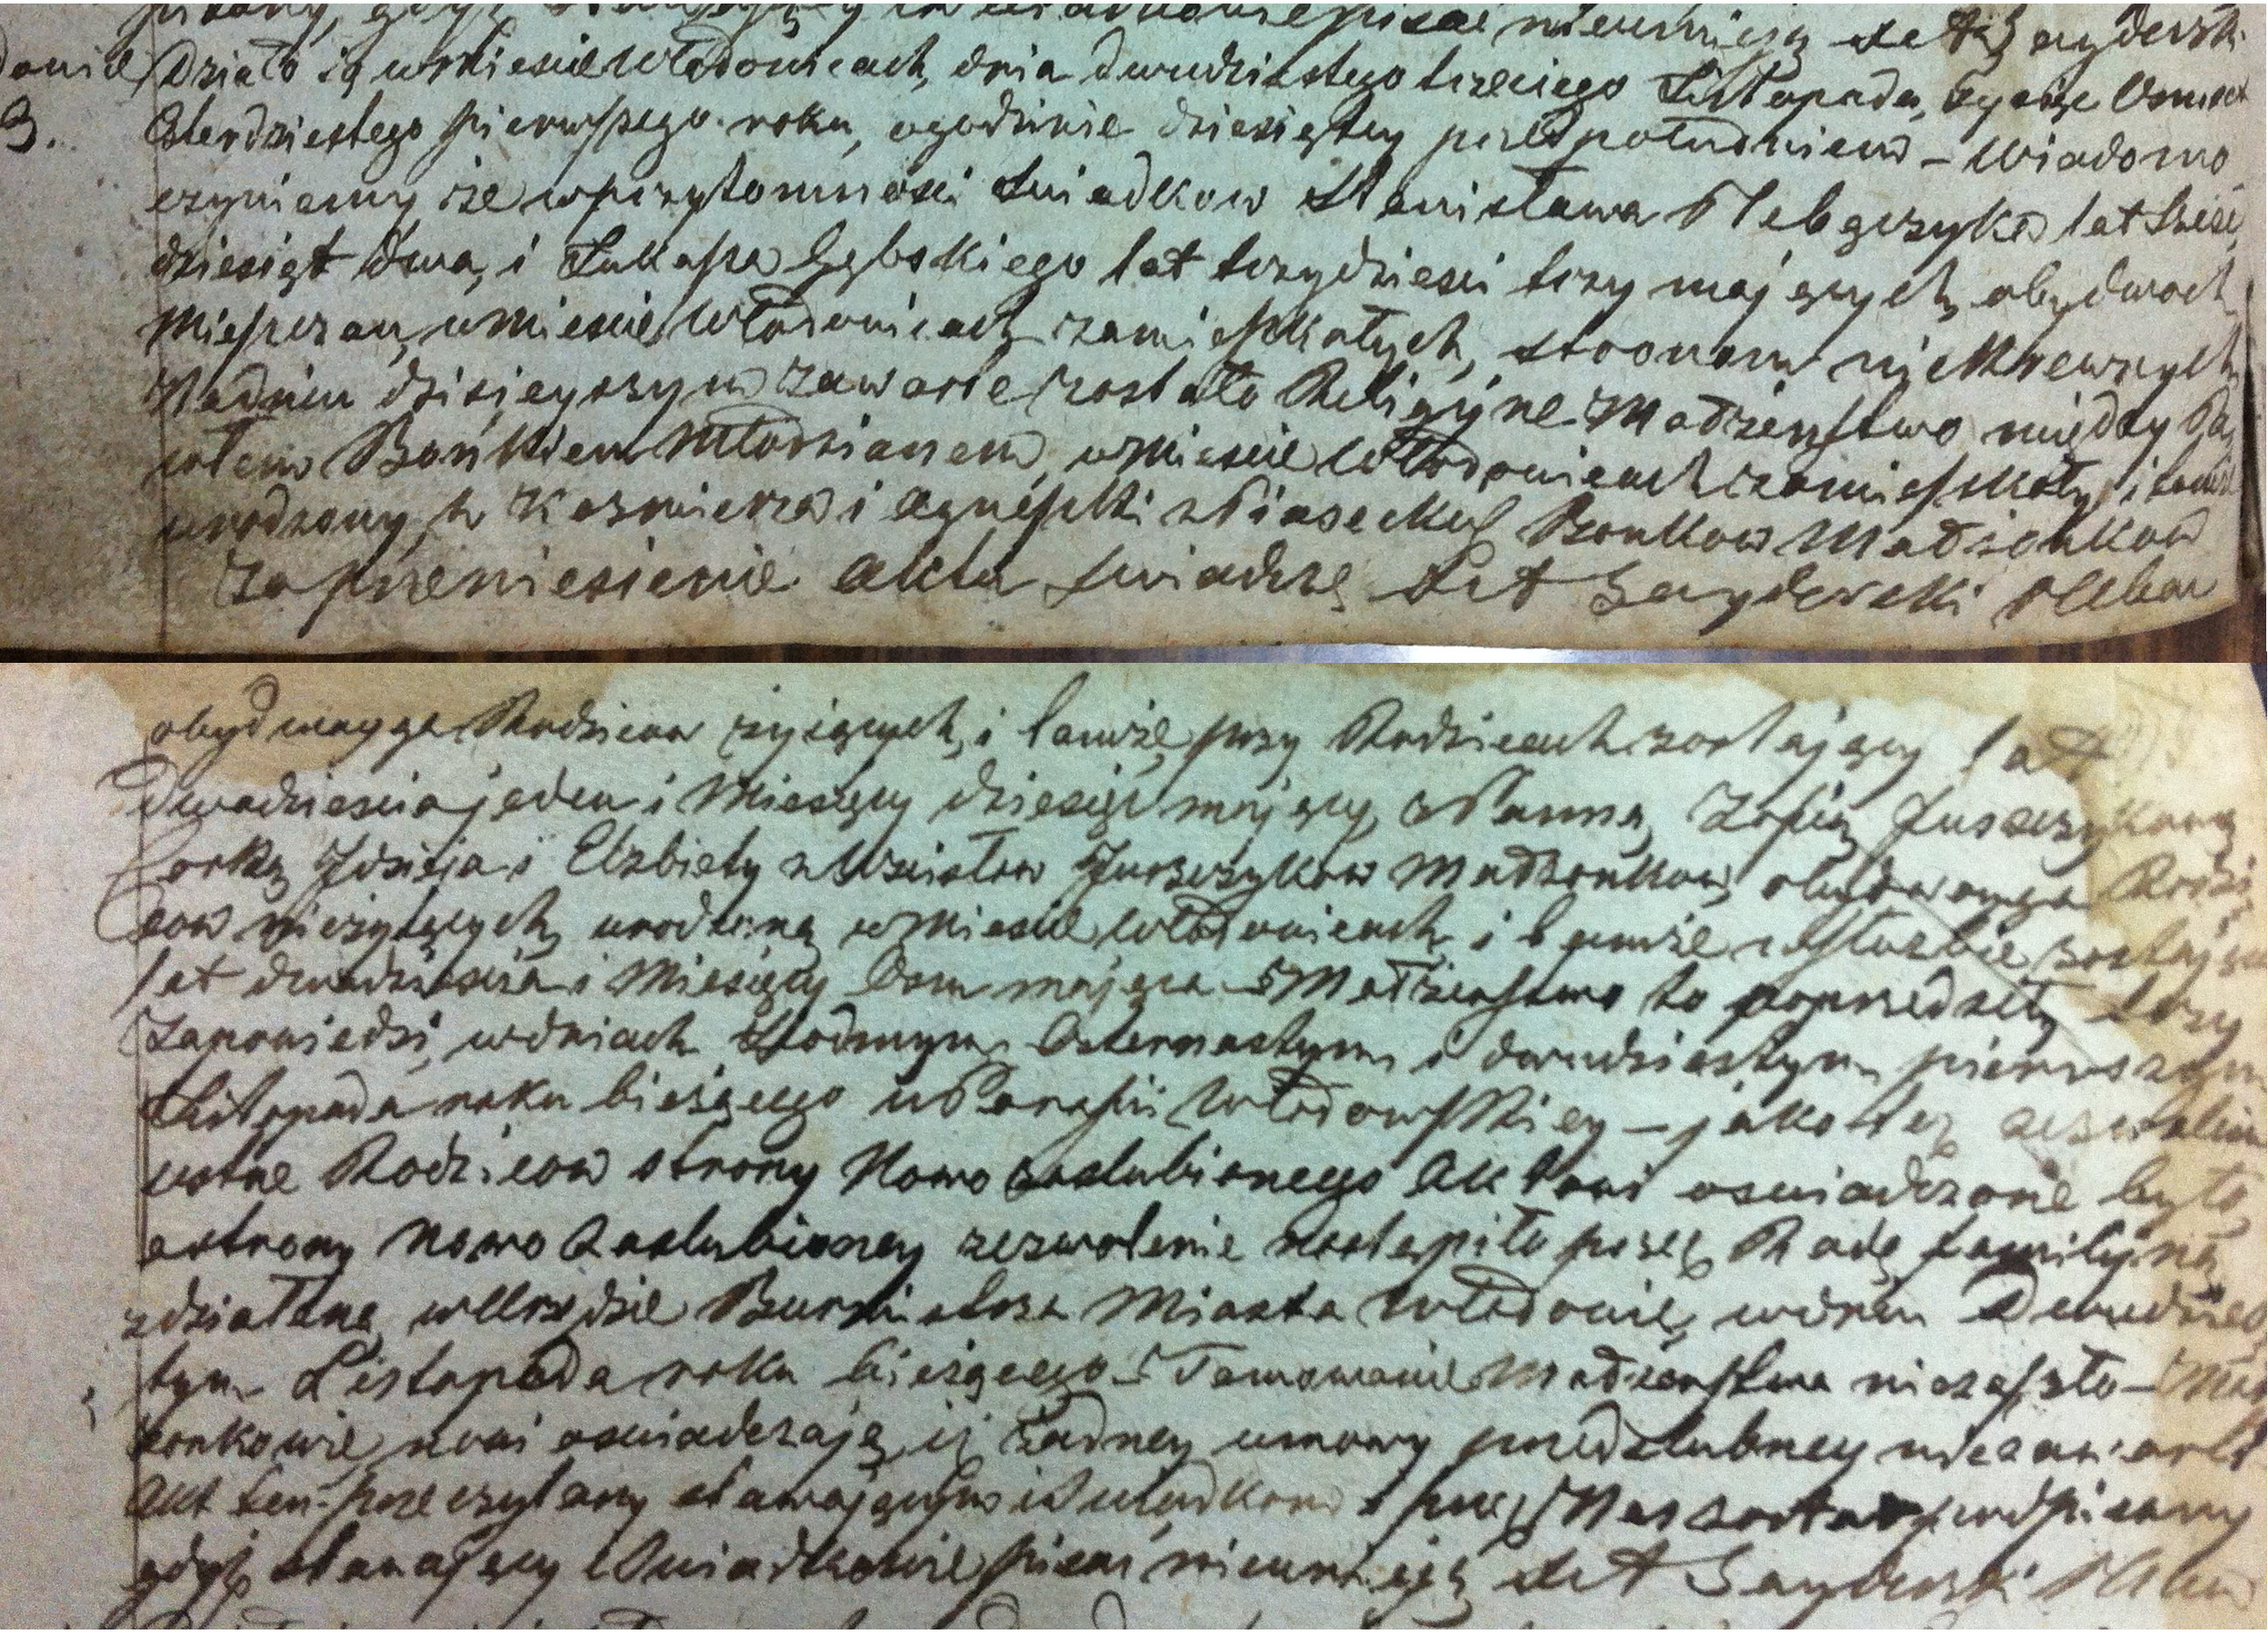 nieumieją
Działo się w Mieście Włodowicach, dnia dwudziestego trzeciego Listopada, tysiąc Osmset
3. Czterdziestego pierwszego roku, o godzinie dziesiątey przed południem – Wiadomo
czyniemy że w przytomności Swiadkow Stanisława lat Sześć
dziesiąt dwa, i Łukasza Gębskiego lat trzydzieści trzy maiących, obydwoch
Mieszczan, w Mieście Włodowicach zamieszkałych, stronom nie Krewnych
Na dniu dzisieyszym zawarte zostało Religijne Małżeństwo między Pa
włem Bońkiem Młodzianem, w Mieście Włodowicach zamieszkały i tamże
urodzony, z Kaźmierza i Agnieszki z Piaseckich Bonkow Małżonkow
Za przeniesienie Akta swiadczę
obydwayga Rodzicow żyiących, i tamże przy Rodzicach zostający lat
Dwadzieścia jeden i Miesięcy dziesięć mający, a Panną Zofią Juszczykową
Corką Idziego i Elżbiety z Juszczykow Małżonkow, obydwayga Rodzi
cow nieżyiących, urodzoną w Mieście Włodowicach i tamże w Służbie zostając
lat dwadzieścia i Miesięcy Osm mającą – Małżeństwo to poprzedziły trzy
Zapowiedzi, w dniach Siodmym, Czternastym i dwudziestym pierwszym
Listopada roku bieżącego w Parafii Włodowskiey – jako też zezwolenie
ustne Rodzicow strony Nowo Zaslubionego Aktowi oswiadczone było,
a strony Nowo Zaslubioney zezwolenie nastąpiło przez Radę familyiną
zdziałaną w Urzędzie Burmistrza Miasta Włodowic, w dniu Dwudzies
tym Listopada roku bieżącego – Tamowanie Małżeństwa nie zaszło – Mał
żonkowie nowi oswiadczają iż żadney umowy przedslubney nie zawarli
Akt ten przeczytany stawającym i Swiadkom i przez Nas został podpisany
gdyż stawający i Swiadkowie pisać nieumieją